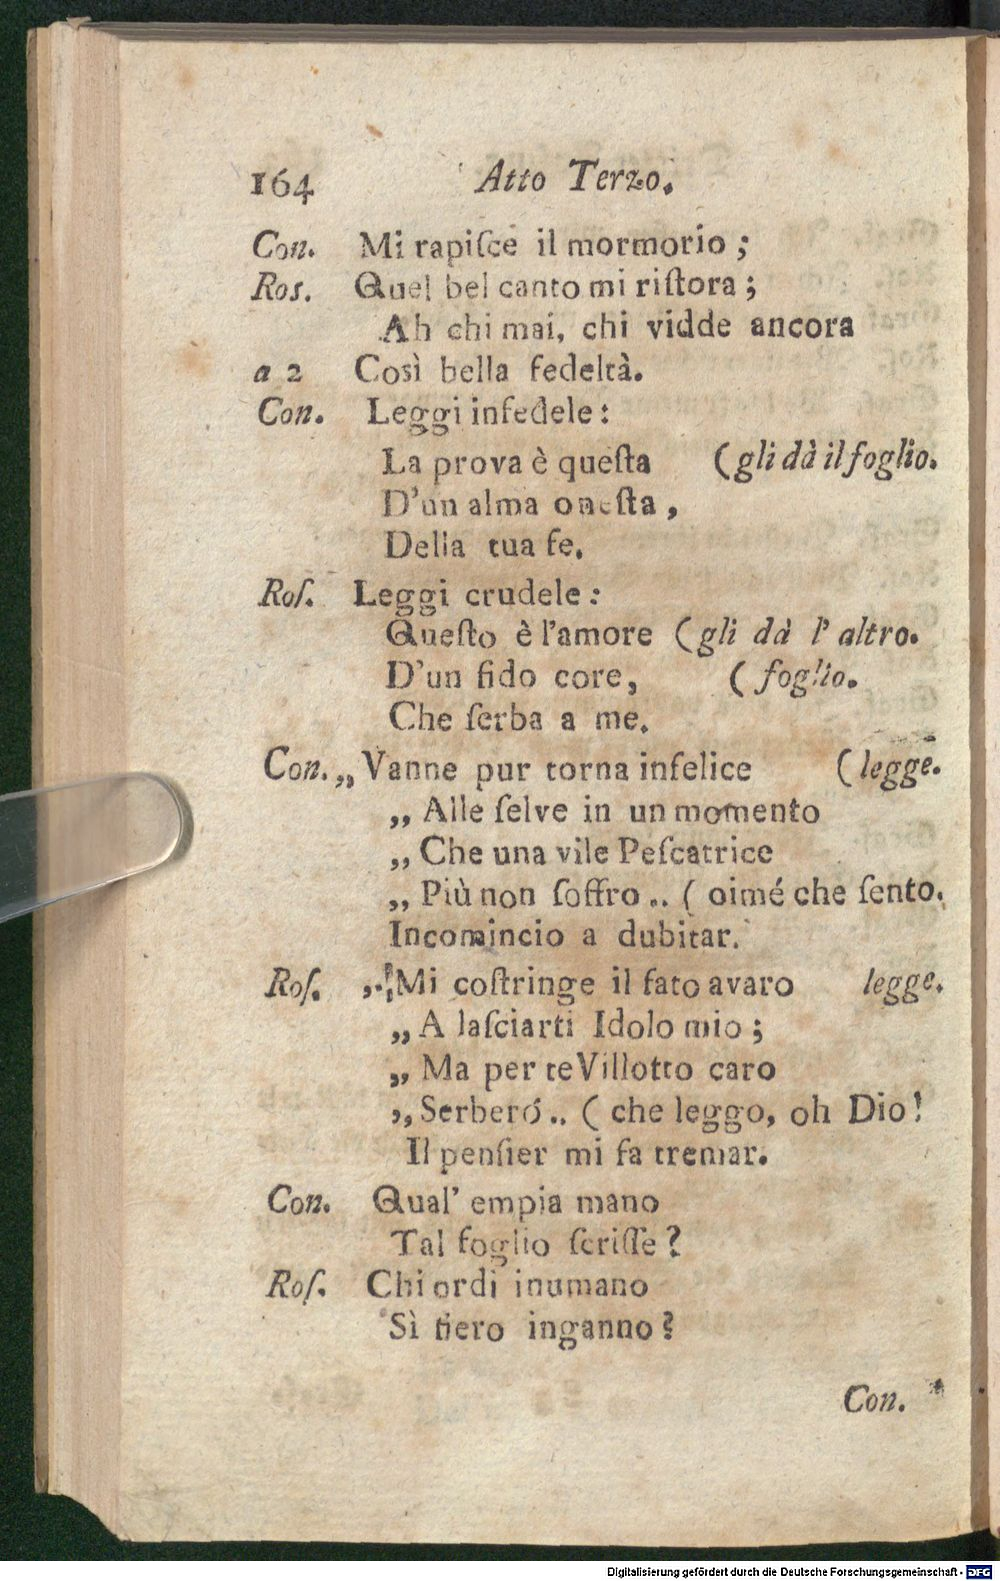 164 Atto Terzo.
Con. Mi rapiſce il mormorio ;
Ros. Quel bel canto mi riſtora ;
Ah chi mai, chi vidde ancora
a 2 Così bella fedeltà.
Con. Leggi infedele :
La prova è queſta (gli dà il foglio.
D'un alma oneſta ,
Della tua fe.
Roſ. Leggi crudele :
Queſto è l'amore (gli dà l' altro.
D'un fido core, ( foglio.
Che ſerba a me.
Con. „ Vanne pur torna infelice (legge.
„ Alle ſelve in un momento
„ Che una vile Peſcatrice
„ Più non ſoffro .. ( oimé che ſento.
Incomincio a dubitar.
Roſ. „ Mi coſtringe il fato avaro legge.
„ A laſciarti Idolo mio ;
„ Ma per te Villotto caro
„ Serberó .. ( che leggo, oh Dio!
Il penſier mi fa tremar.
Con. Qual' empia mano
Tal foglio ſcriſſe ?
Roſ. Chi ordì inumano
Sì fiero inganno ?
Con.
Digitalisierung gefördert durch die Deutsche Forschungsgemeinschaft - DFG